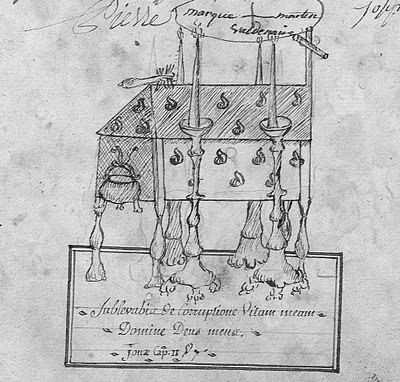 Pierre
marquee martin
Sublevabis De Corruptione Vitam meam
Domine Deus meus.
Jonæ Cap. II